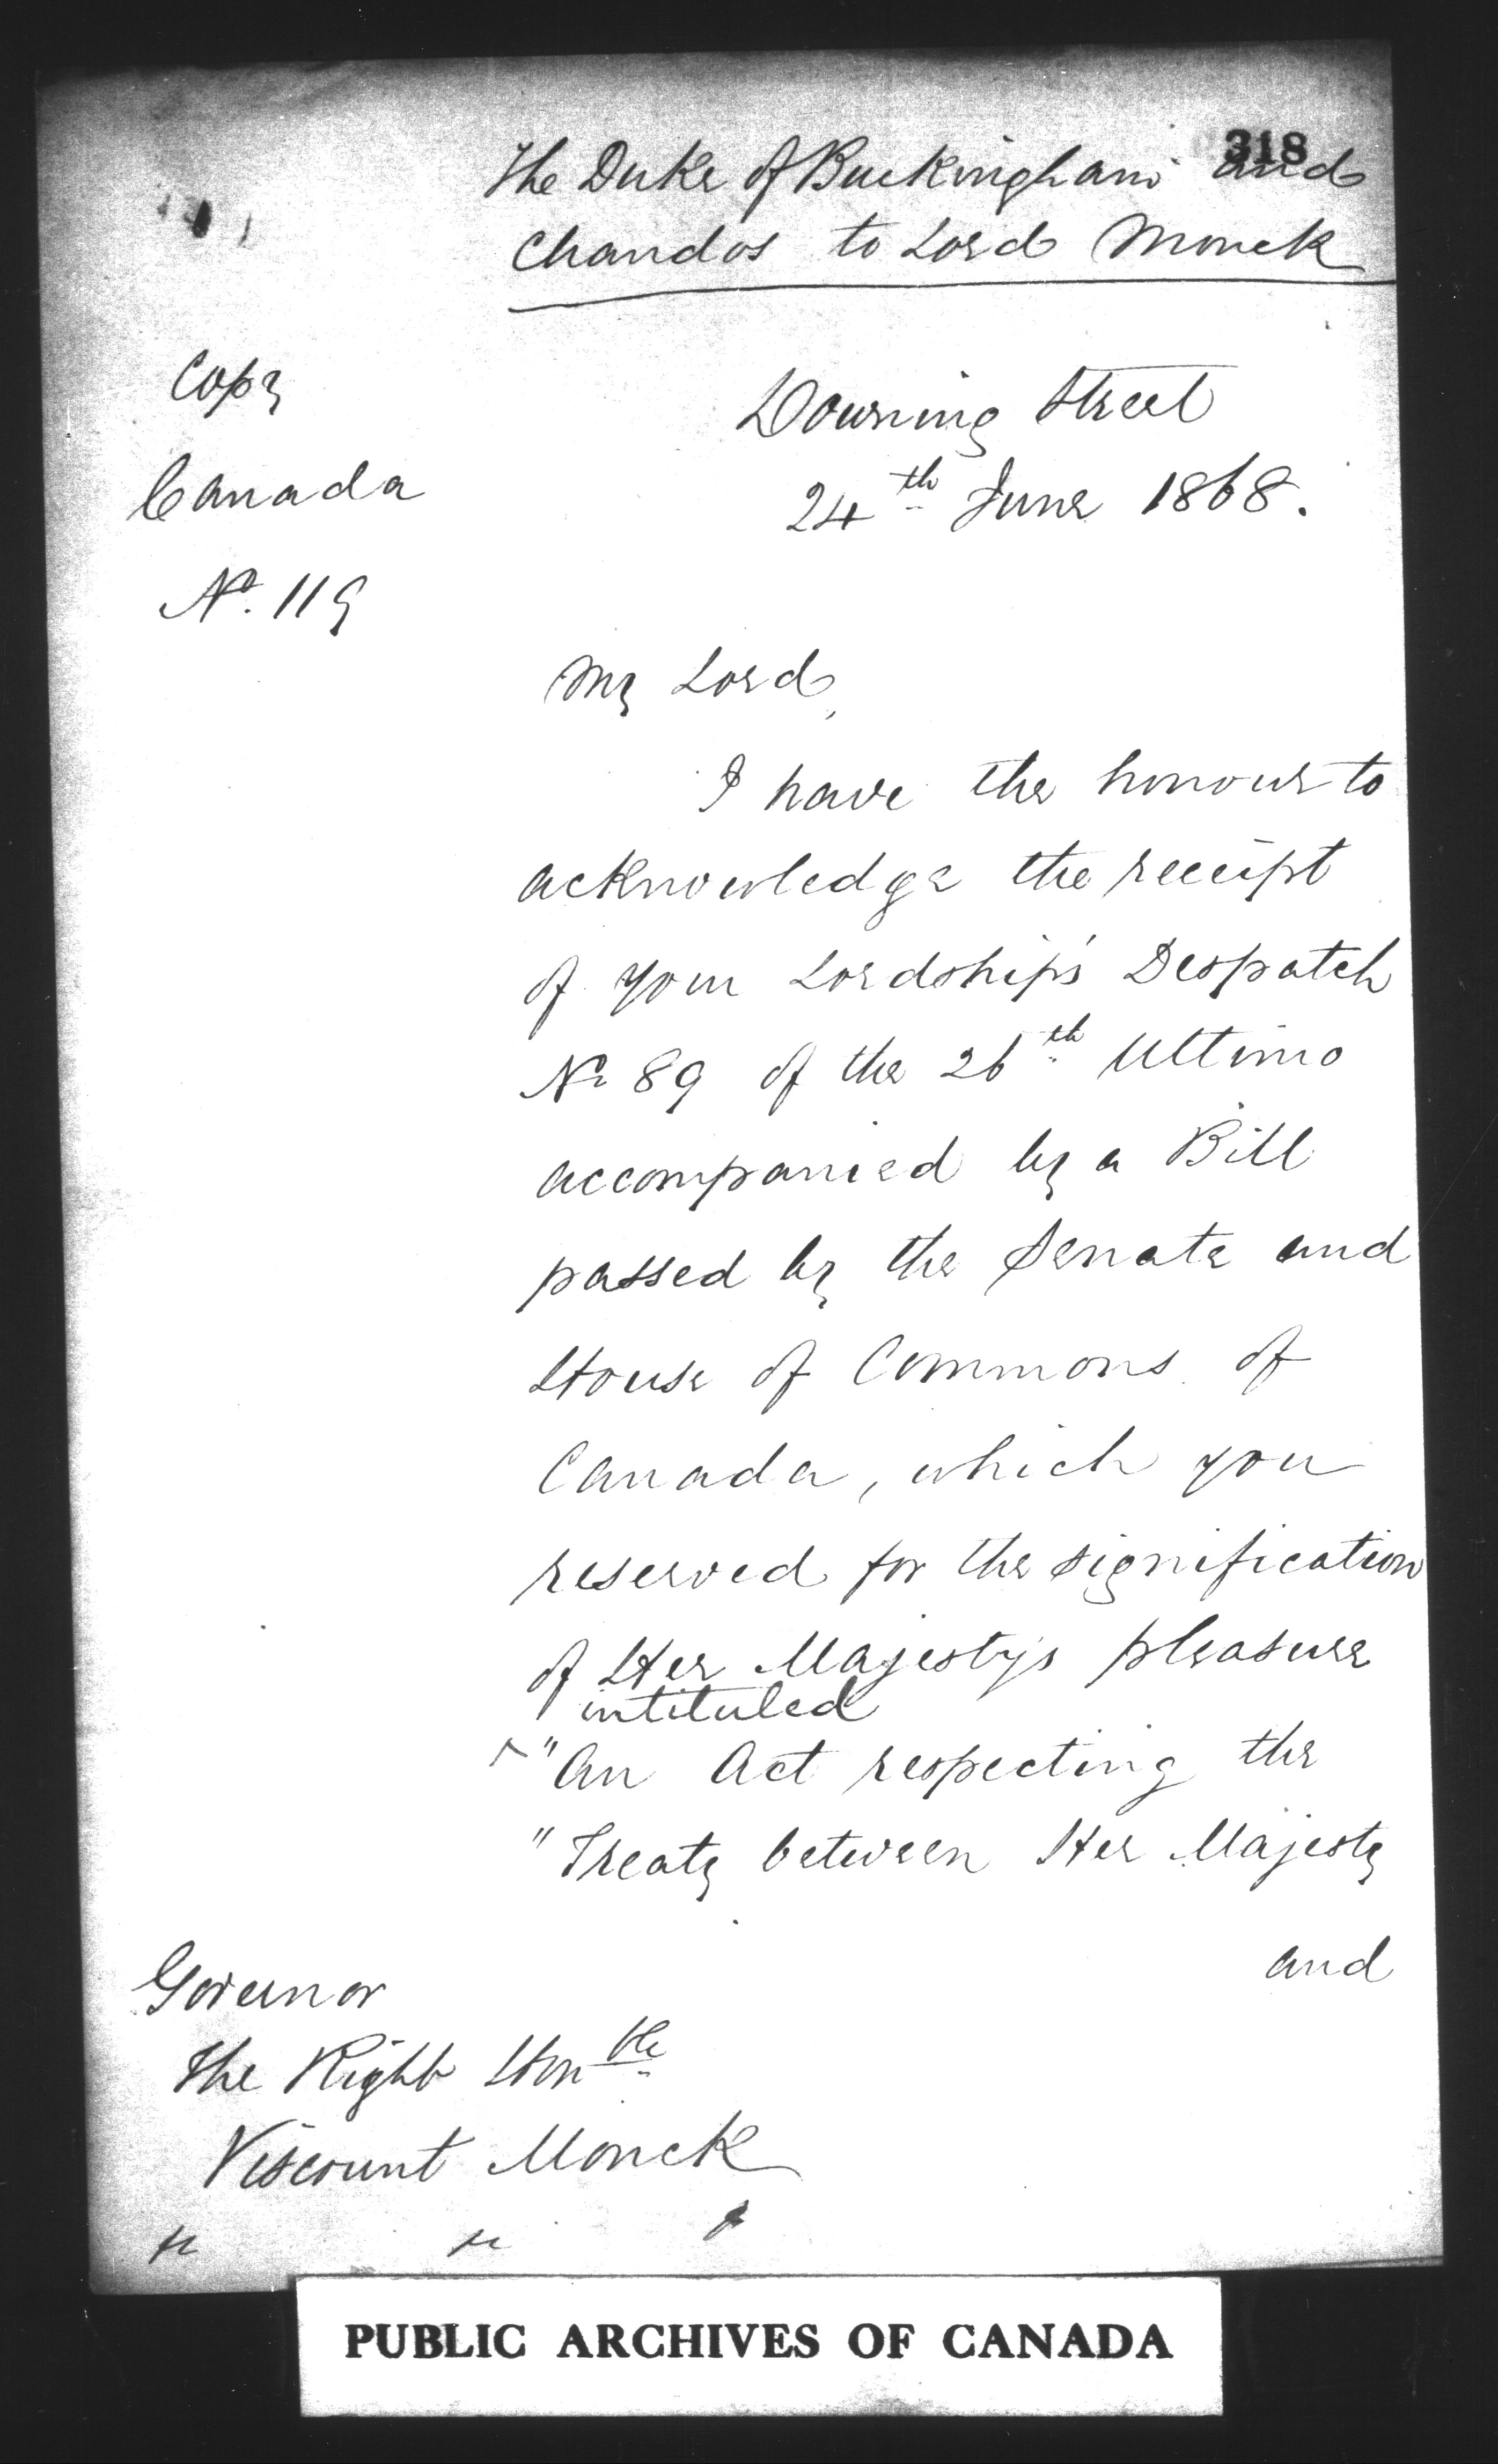 318
The Duke of Buckingham and
Chandos to Lord Monck
Copy
Downing Street
Canada
24th June 1868.
No. 119
My Lord,
I have the honour to
acknowledge the receipt
of your Lordship's Despatch
No 89 of the 26th Ultimo
accompanied by a Bill
passed by the Senate and
House of Commons of
Canada, which you
reserved for the signification
of Her Majesty's pleasure
intituled
"An Act respecting the
"Treaty between Her Majesty
and
Governor
The Right Honble
Viscount Monck
PUBLIC ARCHIVES OF CANADA